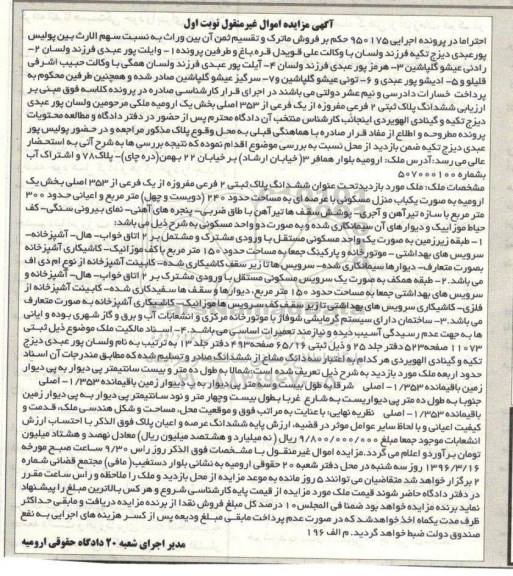 آگهی مزایده اموال غیرمنقول نوبت اول
احتراما در پرونده اجرایی ۹۵۰۱۷۵ حکم بر فروش ماترک و تقسیم ثمن آن بین وراث به نسبت سهم الارث بین پولیس
پور عبدی دیزج تکیه فرزند ولسان با وکالت علی قویدل قره باغ و طرفین پرونده ۱- وایلت پور عبدی فرزند ولسان ۲-
رادنی عیشو گلپاشین ۳- هرمز پور عبدی فرزند ولسان ۴- آیلت پور عبدی فرزند ولسان همگی با وکالت حبیب اشرفی
قلیلو و ۵- ادیشو پور عبدی و ۶- تونی عیشو گلپاشین و ۷- سرگیز عیشو گلپاشین صادر شده و همچنین طرفین محکوم به
پرداخت خسارات دادرسی و نیم عشر دولتی می باشند در اجرای قرار کارشناسی صادره در پرونده کلاسه فوق مبنی بر
ارزیابی ششدانگ پلاک ثبتی ۲ فرعی مفروزه از یک فرعی از ۳۵۳ اصلی بخش یک ارومیه ملکی مرحومین ولسان پور عبدی
دیزج تکیه و گینادی الهویردی اینجانب کارشناس منتخب آن دادگاه محترم پس از حضور در دفتر دادگاه و مطالعه محتویات
پرونده مطروحه و اطلاع از مفاد قرار صادره با هماهنگی قبلی به محل وقوع پلاک مذکور مراجعه و در حضور پولیس پور
عبدی دیزج تکیه ضمن بازدید از محل نسبت به بررسی موضوع اقدام نموده که نتیجه بررسی ها به شرح آتی به استحضار
عالی می رسد: آدرس ملک: ارومیه بلوار همافر ۳ (خیابان ارشاد) بر خیابان ۲۲ بهمن (دره چای)- پلاک ۷۸ و اشتراک آب
بشماره ۵۰۷۰۰۰۱۰۰
مشخصات ملک: ملک مورد بازدید تحت عنوان ششدانگ پلاک ثبتی ۲ فرعی مفروزه از یک فرعی از ۳۵۳ اصلی بخش یک
ارومیه به صورت یکباب منزل مسکونی با عرصه ای به مساحت حدود ۲۴۰ (دویست و چهل) متر مربع و اعیانی حدود ۳۰۰
متر مربع با سازه تیرآهن و آجری- پوشش سقف ها تیرآهن با طاق ضربی- پنجره های آهنی- نمای بیرونی سنگی- کف
حیاط موزاییک و دیوارهای آن سیمانکاری شده و به صورت دو واحد مسکونی به شرح ذیل می باشد:
۱- طبقه زیرزمین به صورت یک واحد مسکونی مستقل با ورودی مشترک و مشتمل بر ۲ اتاق خواب- هال- آشپزخانه-
سرویس های بهداشتی - موتورخانه و پارکینگ جمعا به مساحت حدود ۱۵۰ متر مربع با کف موزائیک- کاشیکاری آشپزخانه
بصورت متعارف- دیوارها سیمانکاری شده- سرویس ها تا زیر سقف کاشیکاری شده- کابینت آشپزخانه از نوع ام دی اف
می باشد. ۲- طبقه همکف به صورت یک سرویس مسکونی مستقل با ورودی مشترک بر ۲ اتاق خواب- هال- آشپزخانه و
سرویس های بهداشتی جمعا به مساحت حدود ۱۵۰ متر مربع، دیوارها و سقف ها سفیدکاری شده- کابینت آشپزخانه از
فلزی- کاشیکاری سرویس های بهداشتی تا زیر سقف کف سرویس ها موزائیک- کاشیکاری آشپزخانه به صورت متعارف
می باشد. ۳- ساختمان دارای سیستم گرمایشی شوفاژ با موتورخانه مرکزی و انشعابات آب و برق و گاز شهری بوده و اعیانی
ها به جهت عدم رسیدگی آسیب دیده و نیازمند تعمیرات اساسی می باشد. ۴- اسناد مالکیت ملک موضوع ذیل ثبتی
۱۱۰۷۳ صفحه ۵۲۳ دفتر جلد ۲۵ و ذیل ثبتی ۶۵/۲۶ صفحه ۴۹۱ دفتر جلد ۱۳ به ترتیب به نام ولسان پور عبدی دیزج
تکیه و گینادی الهویردی هر کدام به اعتبار سه دانگ مشاع از ششدانگ صادر و تسلیم شده که مطابق مندرجات آن اسناد
حدود اربعه ملک مورد بازدید به شرح ذیل تعریف شده است: شمالا به طول ده متر و بیست سانتیمتر پی دیوار به پی دیوار
زمین باقیمانده ۱/۳۵۳- اصلی شرقا به طول بیست و سه متر دیوار به دیوار زمین باقیمانده ۱/۳۵۳- اصلی
جنوبا به طول ده متر پی دیواریست به شارع غربا بطول بیست و چهار متر و نود سانتیمتر پی دیوار به پی دیوار زمین
باقیمانده ۱/۳۵۳- اصلی نظریه نهایی: با عنایت به مراتب فوق و موقعیت محل، مساحت و شکل هندسی ملک، قدمت و
کیفیت اعیانی و با لحاظ سایر عوامل موثر در قضیه، ارزش پایه ششدانگ عرصه و اعیان پلاک فوق الذکر با احتساب ارزش
انشعابات موجود جمعا مبلغ ۹/۸۰۰/۰۰۰/۰۰۰ ریال (نه میلیارد و هشتصد میلیون ریال) معادل نهصد و هشتاد میلیون
تومان برآورد و اعلام می گردد. مزایده اموال غیرمنقول با مشخصات فوق الذکر روز راس ۹/۳۰ ساعت صبح مورخه
۱۳۹۶/۳/۱۶ روز سه شنبه در محل دفتر شعبه ۲۰ حقوقی ارومیه به نشانی بلوار دستغیب (مافی) مجتمع قضائی شماره
۲ برگزار خواهد شد متقاضیان می توانند ۵ روز مانده به موعد مزایده از محل بازدید و ملک را ملاحظه و راس ساعت مقرر
در دفتر دادگاه حاضر شوند قیمت ملک مورد مزایده از قیمت پایه کارشناسی شروع و هر کس بالاترین مبلغ را پیشنهاد
نماید برنده مزایده خواهد بود ضمنا فی المجلس ۱۰ درصد کل مبلغ فروش نقدا از برنده مزایده دریافت و مابقی حداکثر
ظرف مدت یکماه اخذ خواهد شد که در صورت عدم پرداخت مابقی مبلغ ودیعه پس از کسر هزینه های اجرایی به نفع
صندوق دولت ضبط خواهد گردید. م الف ۱۹۶
مدیر اجرای شعبه ۲۰ دادگاه حقوقی ارومیه